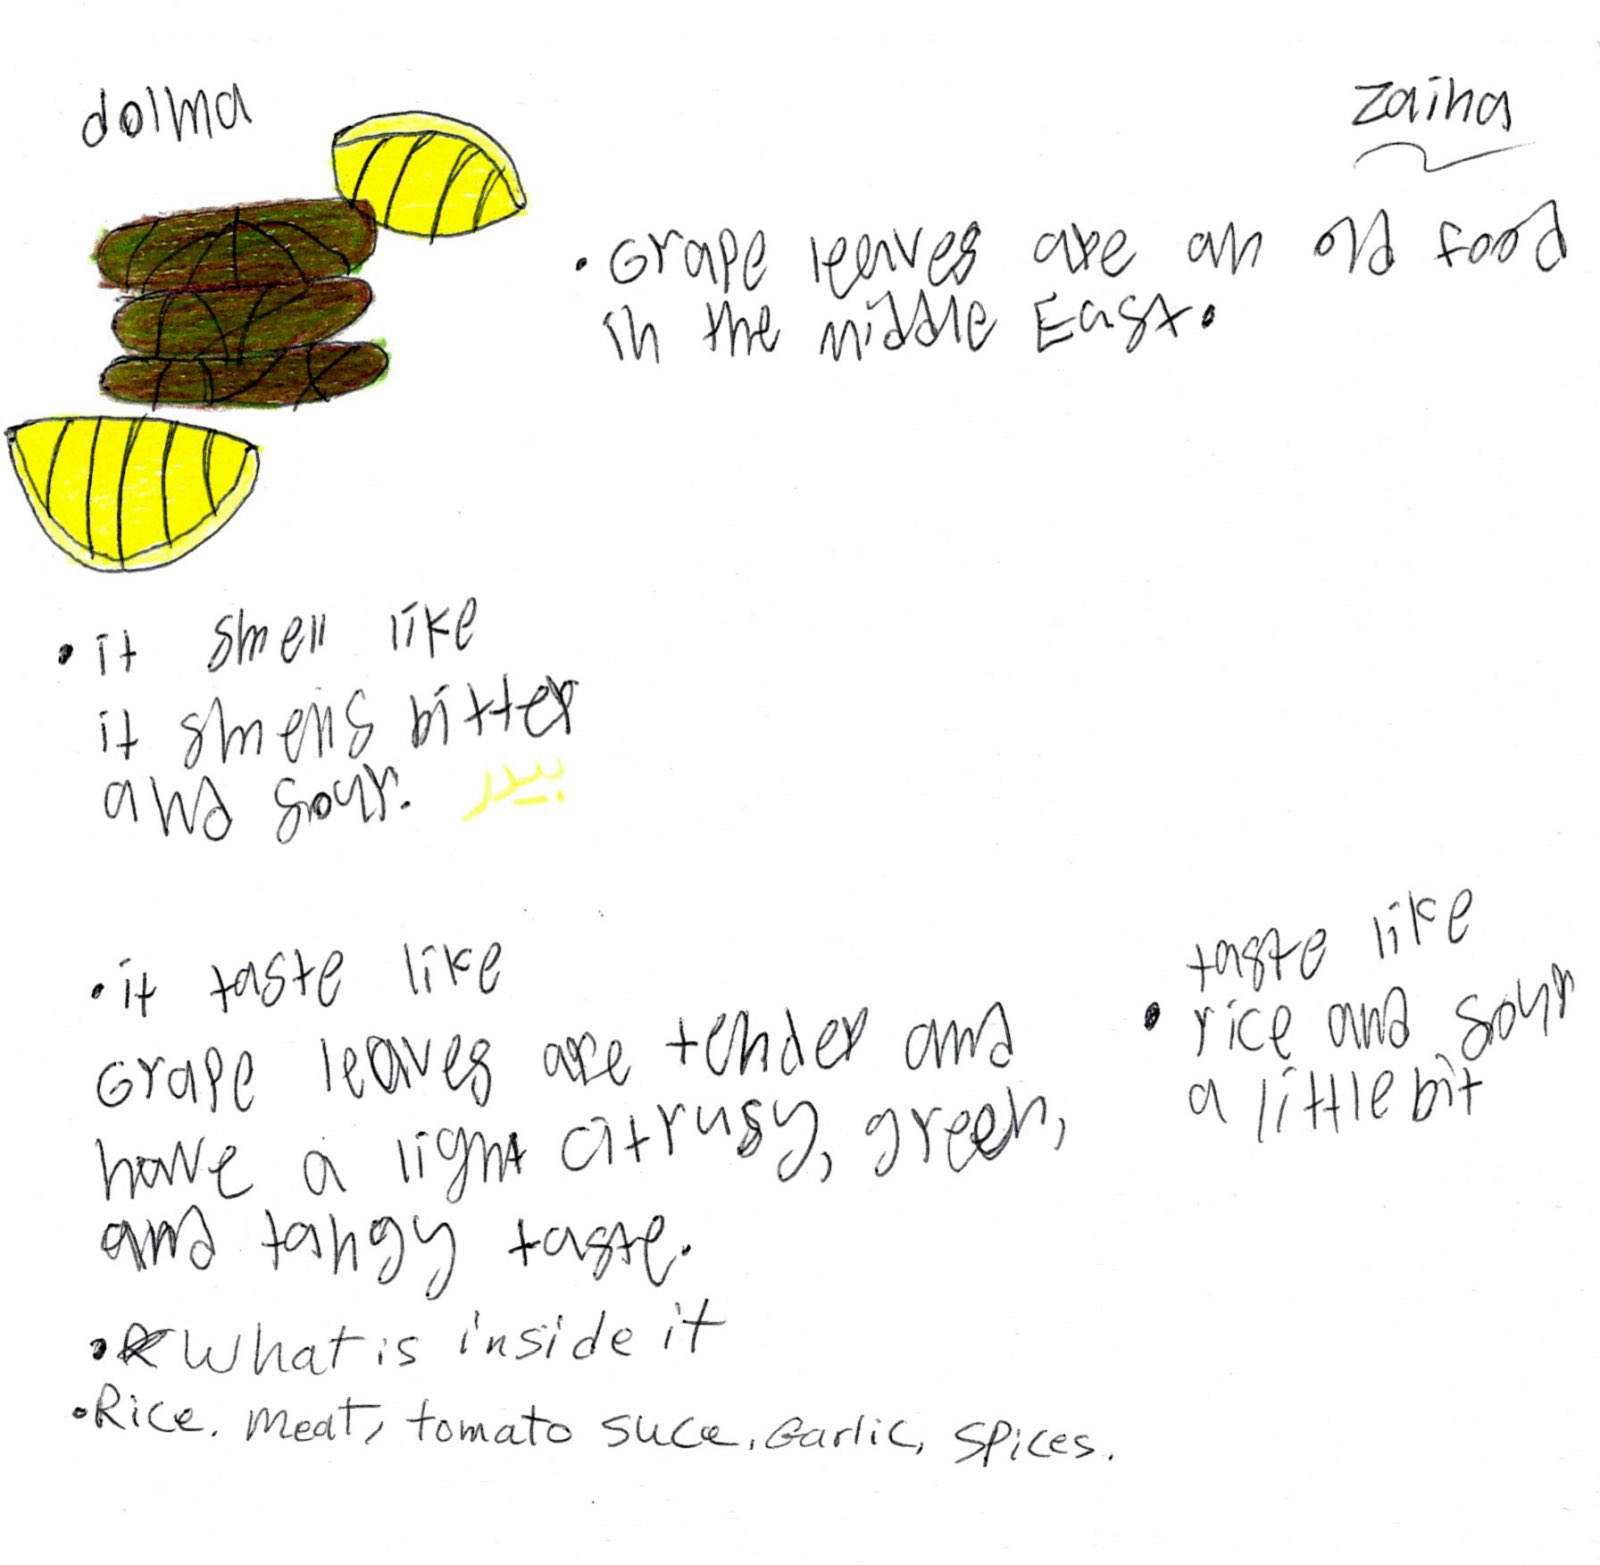 dolma
Zaina
• Grape leaves are an old food
in the middle East.
• it smell like
it smells bitter
and sour.
بيدر
• it taste like
Grape leaves are tender and
have a light citrusy, green,
and tangy taste.
taste like
• rice and sour
a little bit
• What is inside it
• Rice. meat, tomato suce, Garlic, spices.